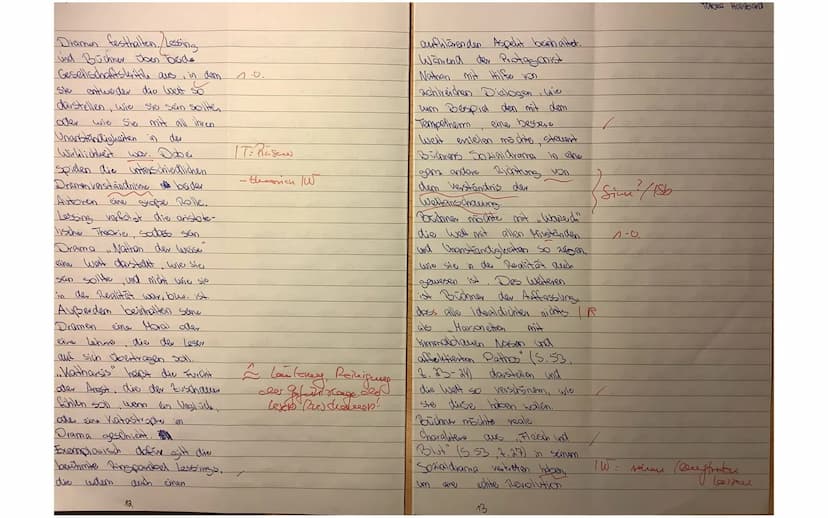 Dramen festhalten. Lessing
und Büchner üben beide
Gesellschaftskritik aus, in dem
sie entweder die Welt so
darstellen, wie sie sein sollte,
oder wie sie mit all ihren
Unanständigkeiten in der
Wirklichkeit war. Dabei
spielen die unterschiedlichen
Dramenverständnisse beider
Autoren eine große Rolle.
Lessing verfolgt die aristote-
lische Theorie, sodass sein
Drama „Nathan der Weise"
eine Welt darstellt, wie sie
sein sollte, und nicht wie sie
in der Realität war, bzw. ist.
Außerdem beinhalten seine
Dramen eine Moral oder
eine Lehre, die der Leser
auf sich übertragen soll.
„Katharsis" heißt die Furcht
oder Angst, die der Zuschauer
fühlen soll, wenn ein Unglück
oder eine Katastrophe im
Drama geschieht.
Exemplarisch dafür gilt die
berühmte Ringparabel Lessings,
die zudem auch einen
12
n.o.
T: Präsens
IW
Läuterung, Reinigung
aufklärenden Aspekt beinhaltet.
Während der Protagonist
Nathan mit Hilfe von
zahlreichen Dialogen, wie
zum Beispiel den mit dem
Tempelherrn, eine bessere
Welt erzielen möchte, steuert
Büchners Sozialdrama in eine
ganz andere Richtung von
dem Verständnis der
Weltanschauung.
Büchner möchte mit „Woyzeck"
die Welt mit allen Misständen
und Unanständigkeiten so zeigen
wie sie in der Realität auch
gewesen ist. Des Weiteren
ist Büchner der Auffassung
dass alle Idealdichter nichts
als „Marionetten mit
himmelblauen Nasen und
affektiertem Pathos" (S. 53,
Z. 23-24) darstellen und
die Welt so verschönern, wie
sie diese haben wollen.
Büchner möchte reale
Charaktere aus „Fleisch und
Blut" (S. 53, Z. 27) in seinem
Sozialdrama vertreten haben,
um eine echte Revolution
13
Sinn? / Sb
n.o.
R
IW: